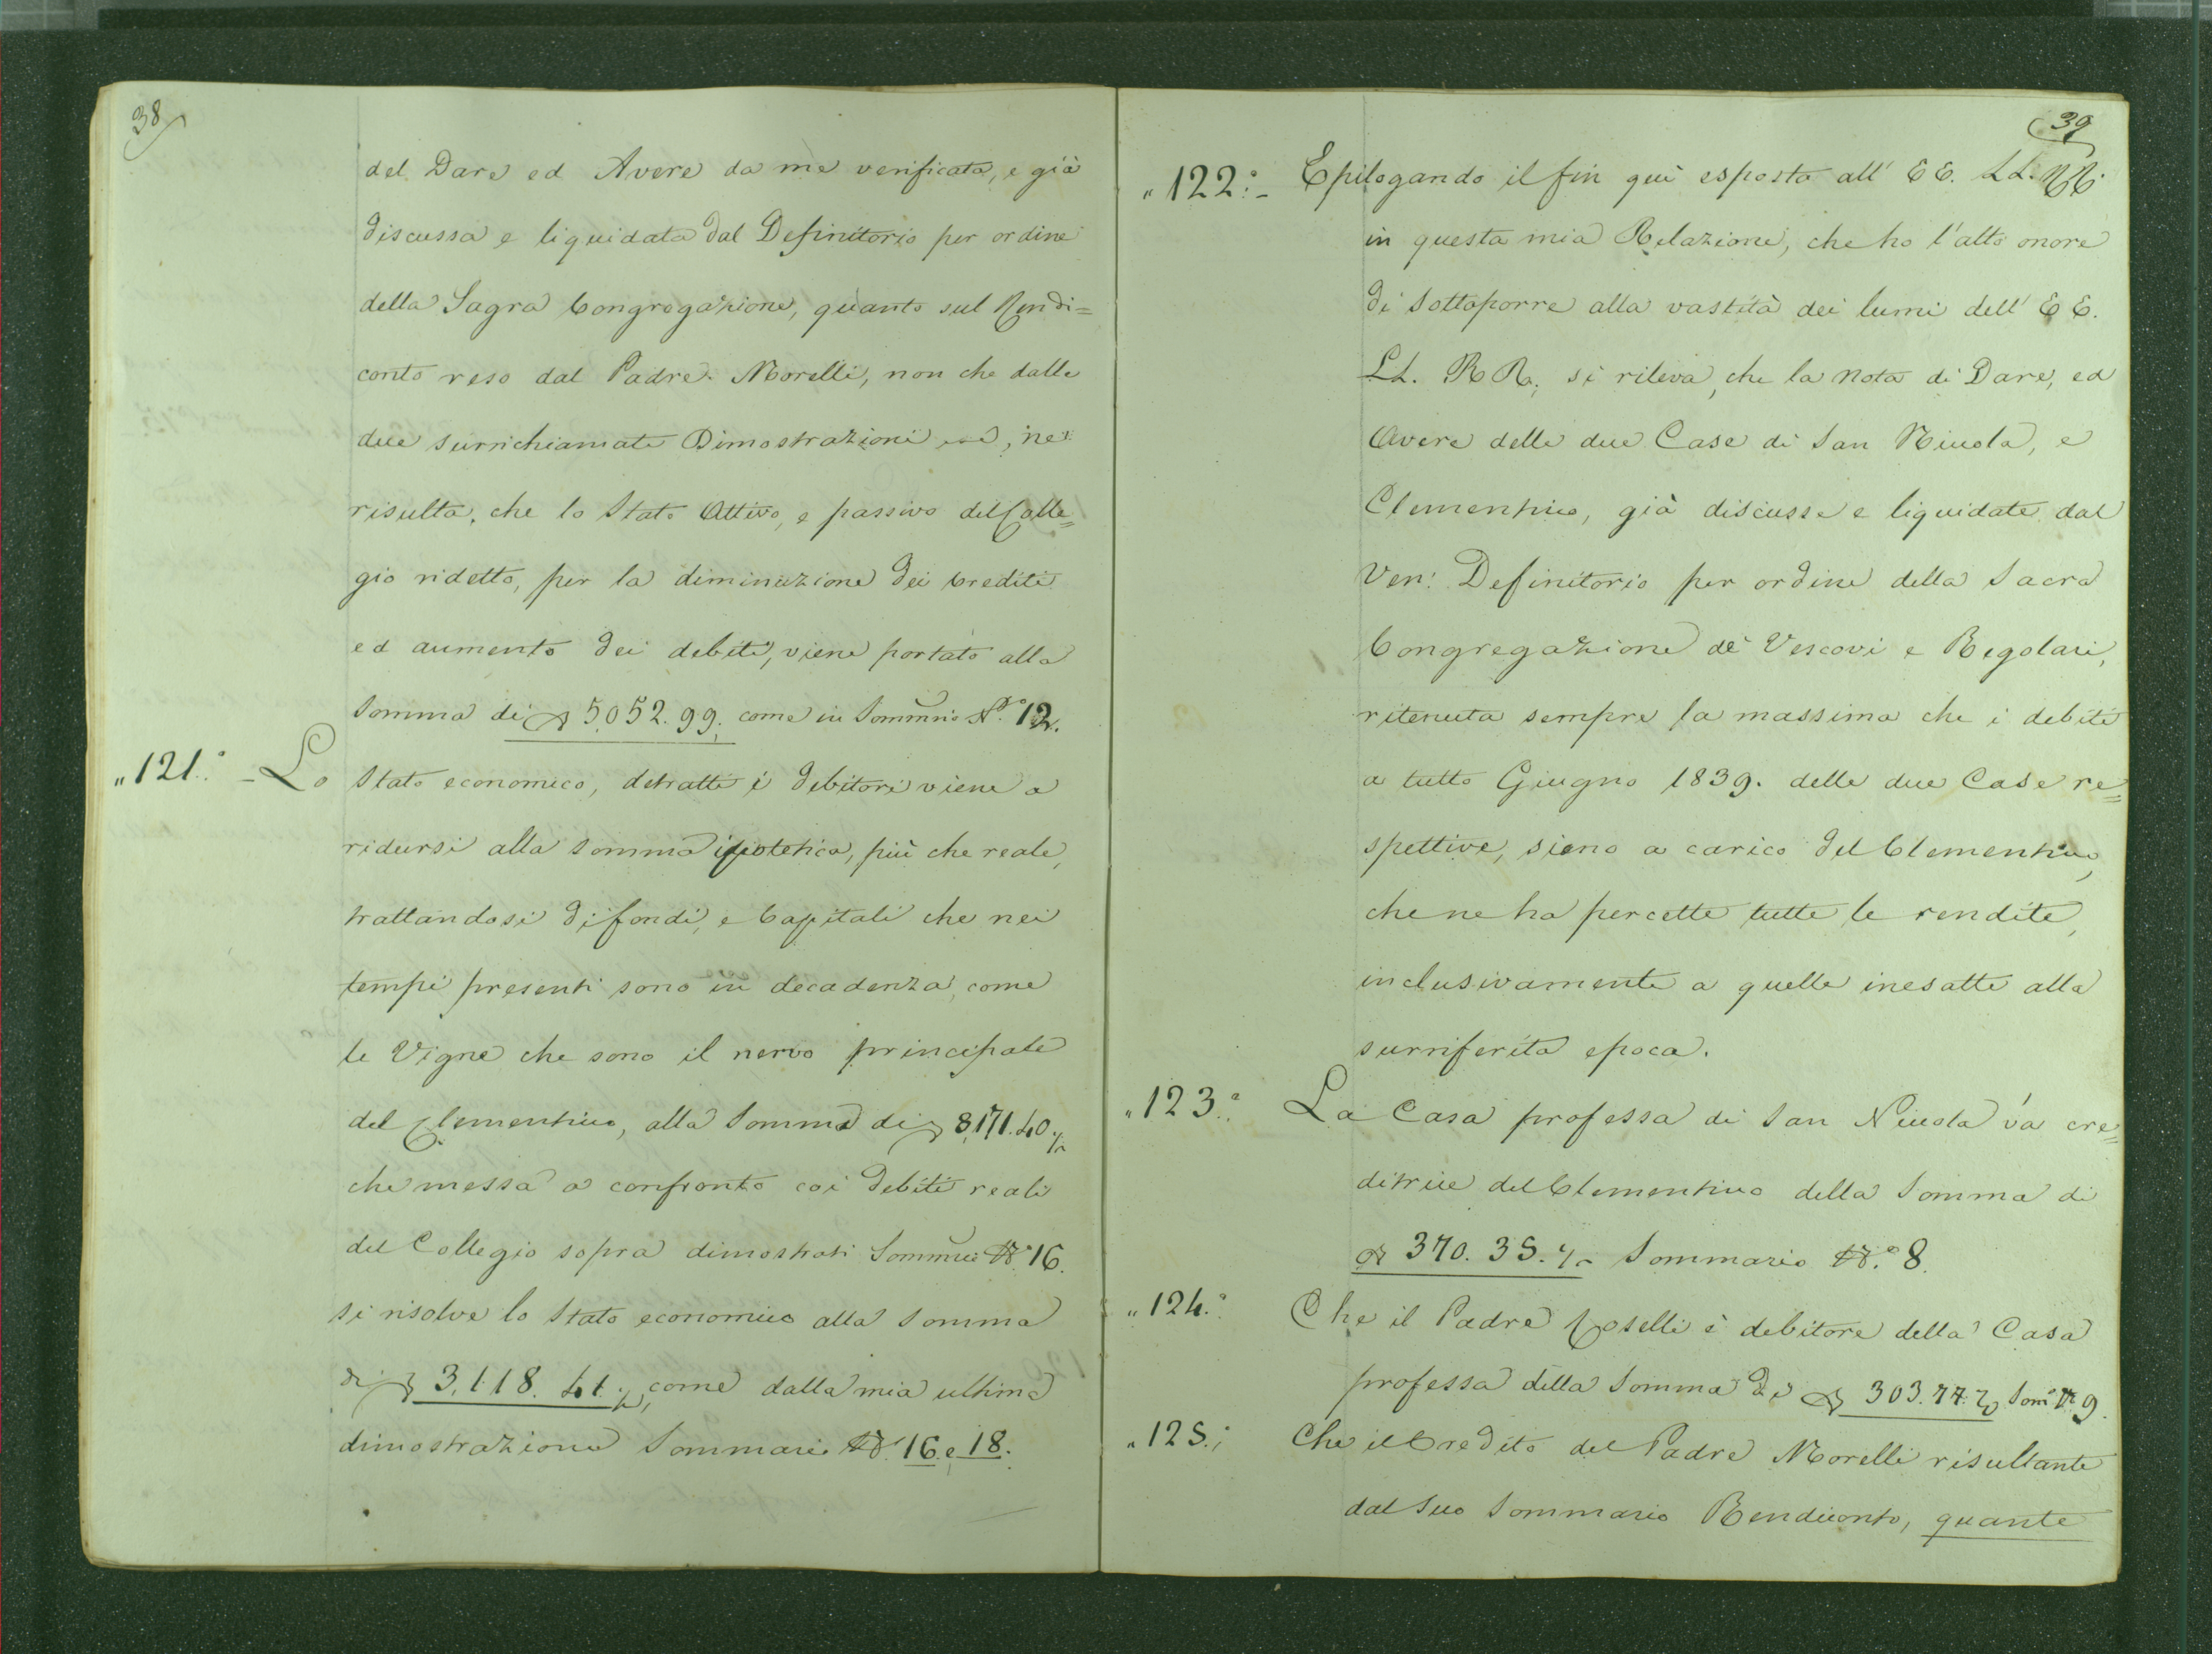 38
del Dare ed Avere da me verificata, e già
discussa e liquidata dal Definitorio per ordine
della Sagra Congregazione, quanto sul Rendi=
conto reso dal Padre Morelli, non che dalle
due surrichiamate Dimostrazioni, ne
risulta, che lo Stato Attivo, e passivo del Colle=
gio ridetto, per la diminuzione dei crediti
ed aumento dei debiti, viene portato alla
Somma di 5052.99. come in Sommrio N.° 12.
"121.° - Lo Stato economico, detratti i debitori viene a
ridursi alla Somma ipotetica, più che reale,
trattandosi di fondi, e Capitali che nei
tempi presenti sono in decadenza, come
le Vigne che sono il nervo principale
del Clementino, alla Somma di 8,171.40.
che messa a confronto coi debiti reali
del Collegio sopra dimostrati Sommrio N.° 16.
si risolve lo Stato economico alla Somma
di 3,118.41. come dalla mia ultima
dimostrazione Sommario N.° 16. e 18.
39
"122.° - Epilogando il fin quì esposto all' EE. LL. RR.
in questa mia Relazione, che ho l'alto onore
di Sottoporre alla vastità dei lumi dell' EE.
LL. RR. si rileva, che la Nota di Dare, ed
Avere delle due Case di San Nicola, e
Clementino, già discusse e liquidate dal
Ven: Definitorio per ordine della Sacra
Congregazione de' Vescovi e Regolari,
ritenuta sempre la massima che i debiti
a tutto Giugno 1839. delle due Case re=
spettive, sieno a carico del Clementino,
che ne ha percette tutte le rendite,
inclusivamente a quelle inesatte alla
surriferita epoca.
"123.° La Casa professa di San Nicola và cre=
ditrice del Clementino della Somma di
370.35. Sommario N.° 8.
"124.° Che il Padre Roselli è debitore della Casa
professa della Somma di 303.77. Som° N° 9.
"125.° Che il Credito del Padre Morelli risultante
dal Suo Sommario Rendiconto, quante